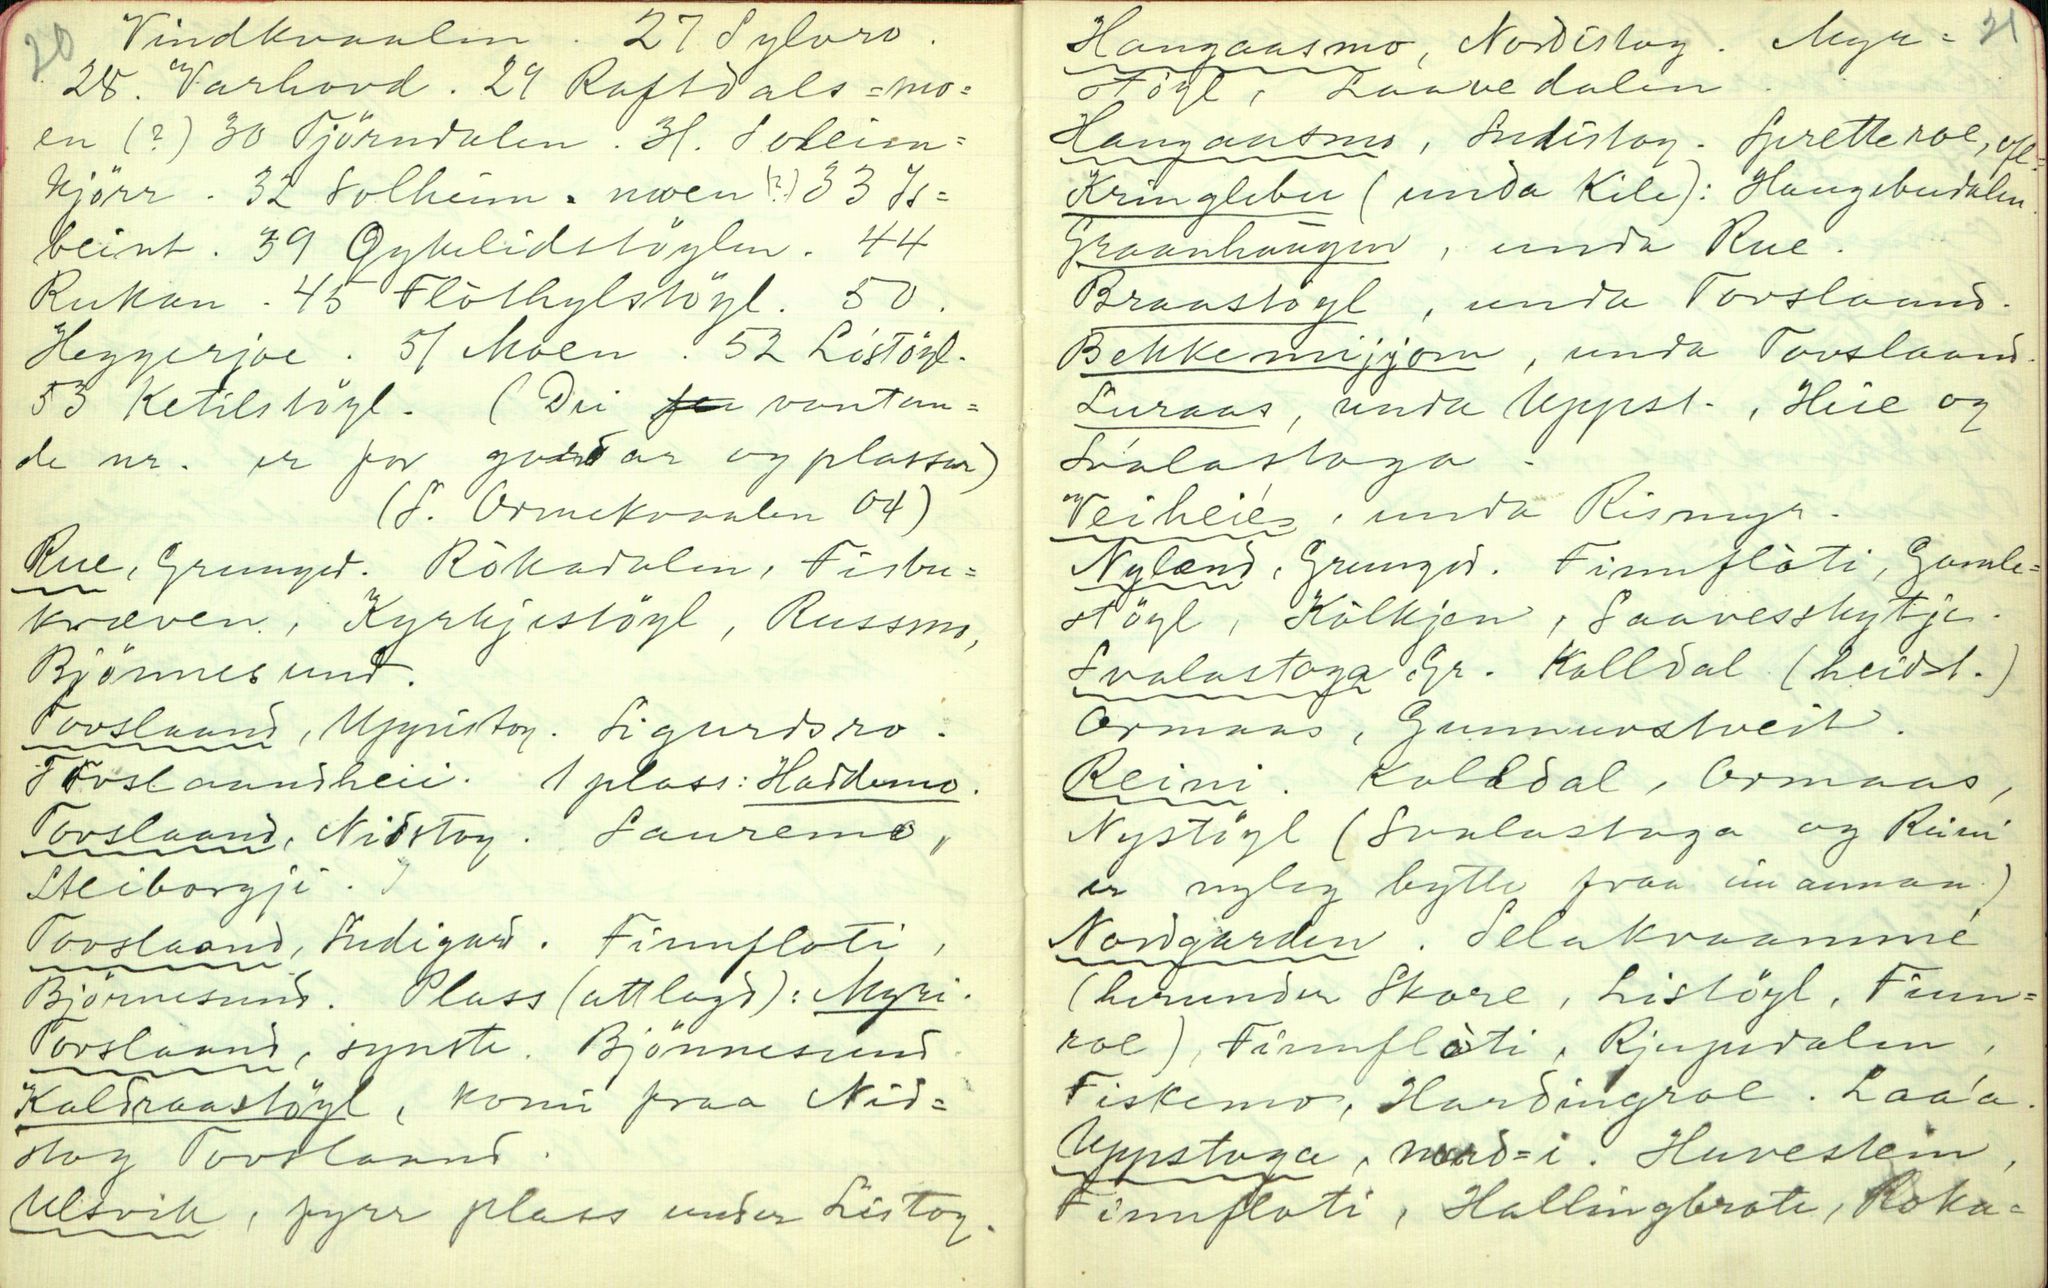 20
Vindkvaalen . 27 Sylvro .
28. Varhovd . 29 Raftdals =mo=
en (?) 30 Tjörndalen . 31. Soleien=
kjörr . 32 Solheim . moen (?) 33 Is=
beint . 39 Gykelidstöylen . 44
Rukan . 45 Flòthylstöyl . 50 .
Heggerjoe . 51 Moen . 52 Listöyl .
53 Ketilstöyl . (Dei vantan=
de nr. er for gardar og plassar)
(S. Ormekvaalen 04)
Rue, Grunged. Ròkadalen, Fisbu=
kræven, Kyrkjestöyl, Russmo,
Bjönnesund.
Tovslaand, Uppistog. Sigurdsro .
Tovslaandheii . 1 plass: Haddemo .
Tovslaand, Nidstog . Lauremo,
Steiborgji .
Tovslaand, Sudigard . Finnfloti,
Bjönnesund. Plass (attlagd): Myri .
Tovslaand, synste . Bjönnesund
Kaldraastöyl, komi fraa Nid=
stog Tovslaand .
Ulsvik, fyrr plass under Listog .
21
Haugaasmo, Nordistog . Myr=
stöyl, Laavedalen .
Haugaasmo, Sudistog . Spretteroe,
Kringlebu (unda Kile): Haugebudalen.
Graanhaugen, unda Rue .
Braastöyl, unda Tovslaand .
Bekkemijjom, unda Tovslaand .
Luraas, unda Uppst. , Heie og
Svalastoga .
Veiheié, unda Rismyr .
Nyland, Grunged. Finnflòti, Gamle=
stöyl, Kòlkjen, Saavesshytje .
Svalastoga Gr. Kalldal (heidst.)
Ormaas, Gunnuvstveit .
Reini . Kalldal, Ormaas,
Nystöyl (Svalastoga og Reini
er nyleg bytte fraa einannan)
Nordgarden . Selakvaammé
(herunder Skore, Listöyl, Finn=
roe), Finnflòti, Rjupedalen,
Fiskemo, Hardingroe . Laaà .
Uppstoga, nord=i . Huvestein,
Finnfloti, Hallingbrote, Roka=